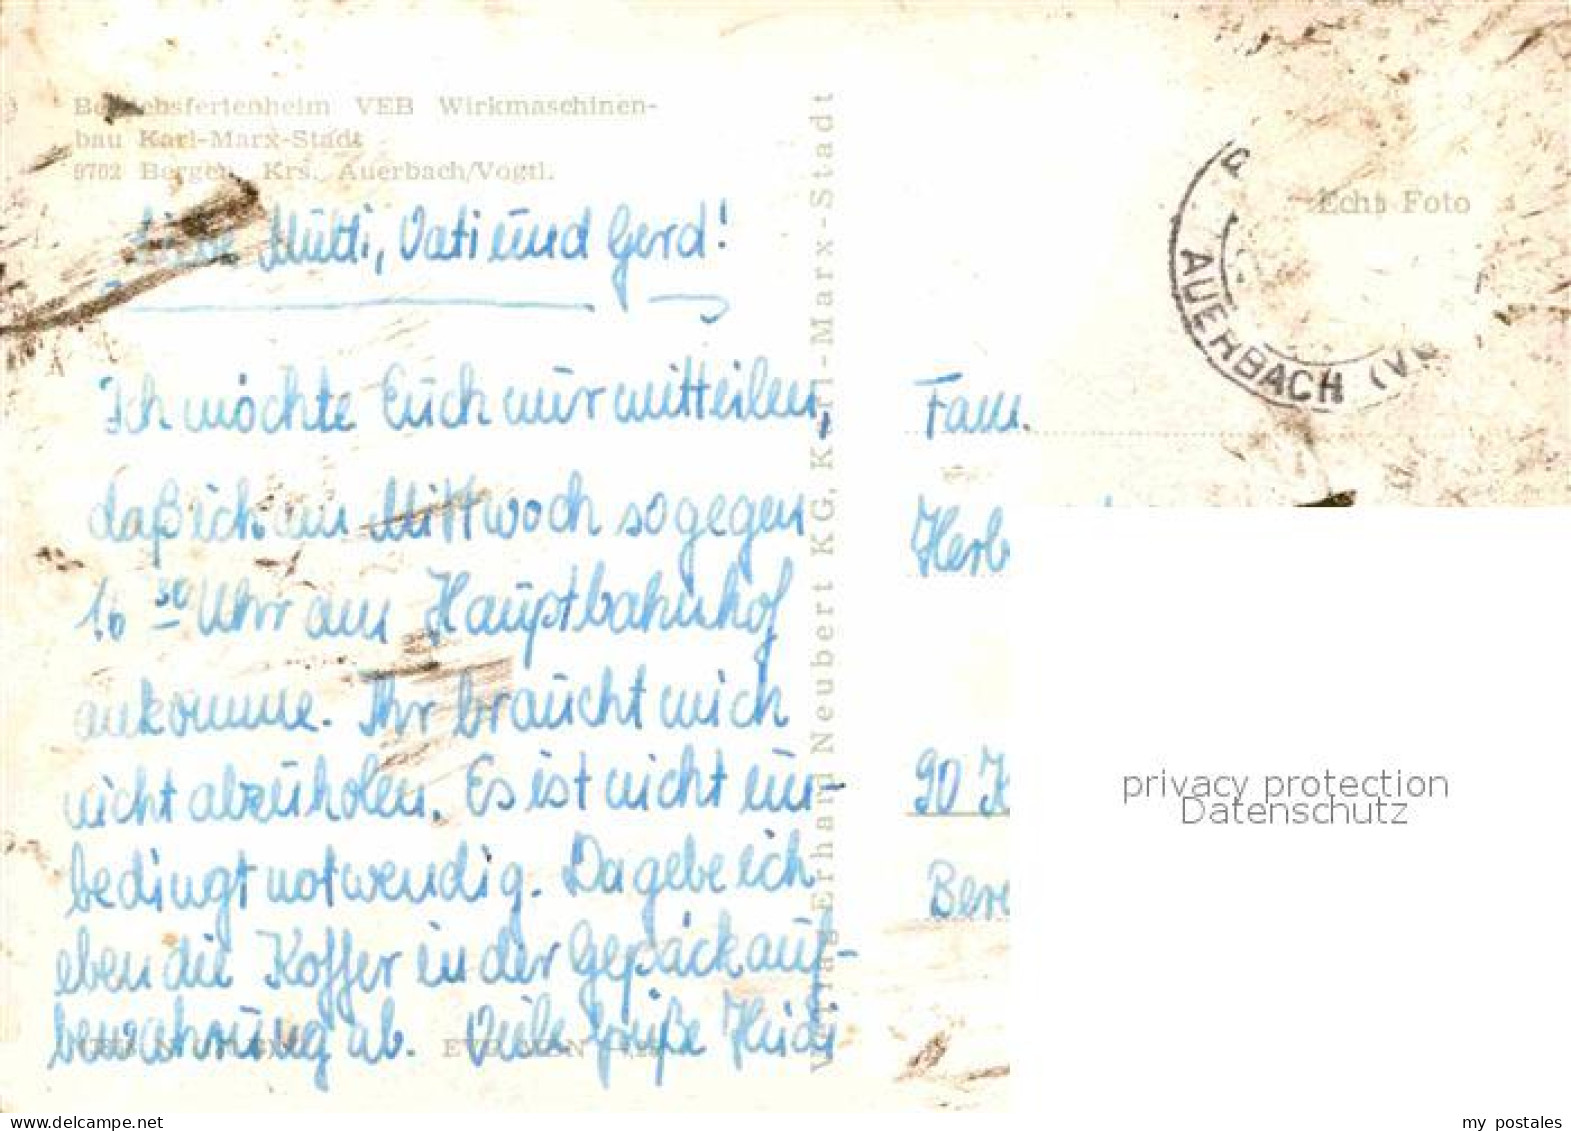 Betriebsferienheim VEB Wirkmaschinen-
bau Karl-Marx-Stadt
9702 Bergen, Krs. Auerbach/Vogtl.
Liebe Mutti, Vati und Gerd!
Ich möchte Euch nur mitteilen,
daß ich am Mittwoch so gegen
16 30 Uhr am Hauptbahnhof
ankomme. Ihr braucht mich
nicht abzuholen. Es ist nicht un-
bedingt notwendig. Da gebe ich
eben die Koffer in der Gepäckauf-
bewahrung ab. Viele Grüße Heidi
Verlag Erhard Neubert KG, Karl-Marx-Stadt
Echt Foto
AUERBACH (V
Fam.
Herb
90 K
Bere
privacy protection
Datenschutz
www.delcampe.net
my_postales